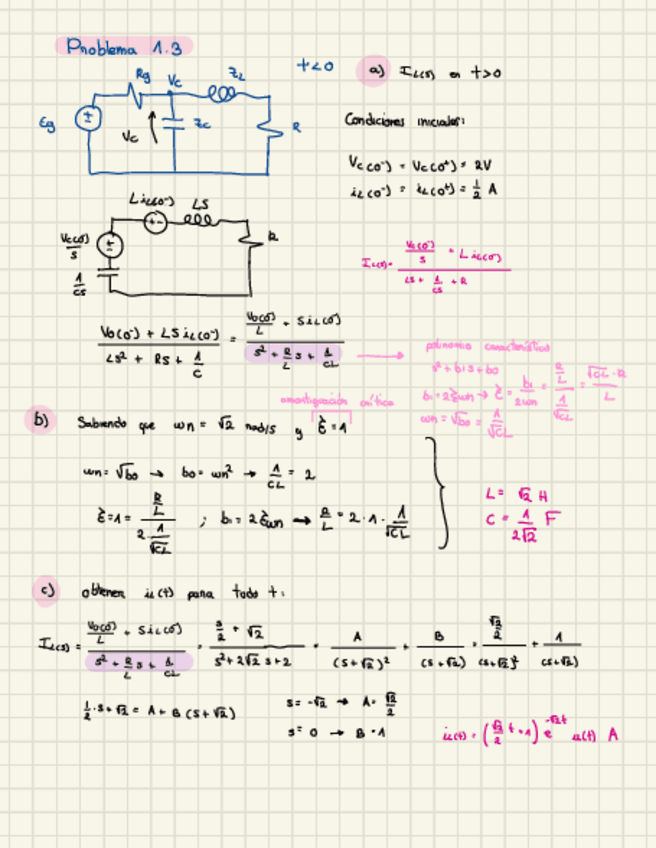 Problema 1.3
t<0
a) IL(s) en t>0
Rg Vc ZL
Eg Vc Zc R
Condiciones iniciales:
Vc(0⁻) = Vc(0⁺) = 2V
iL(0⁻) = iL(0⁺) = 1/2 A
LiL(0⁻) LS
Vc(0⁻)/s R
1/CS
IL(s) = (Vc(0⁻)/s + LiL(0⁻)) / (LS + 1/CS + R)
(Vc(0⁻) + LS iL(0⁻)) / (LS² + RS + 1/C) = (Vc(0⁻)/L + S iL(0⁻)) / (s² + R/L s + 1/CL)
polinomio característico
s² + b1s + b0
b1 = 2ξwn → ξ = b1/2wn = (R/L)/(1/√CL) = √CL·R/L
wn = √b0 = 1/√CL
amortiguación crítica
b) Sabiendo que wn = √2 rad/s y ξ = 1
wn = √b0 → b0 = wn² → 1/CL = 2
ξ = 1 = (R/L)/(2·1/√CL) ; b1 = 2ξwn → R/L = 2·1·1/√CL
L = √2 H
C = 1/2√2 F
c) obtener iL(t) para todo t.
IL(s) = (Vc(0⁻)/L + S iL(0⁻)) / (s² + R/L s + 1/CL) = (s/2 + √2) / (s² + 2√2 s + 2) = A/(s+√2)² + B/(s+√2) = (√2/2)/(s+√2)² + 1/(s+√2)
1/2·s + √2 = A + B(s+√2)
s = -√2 → A = √2/2
s = 0 → B = 1
iL(t) = (√2/2 t + 1) e^(-√2t) u(t) A